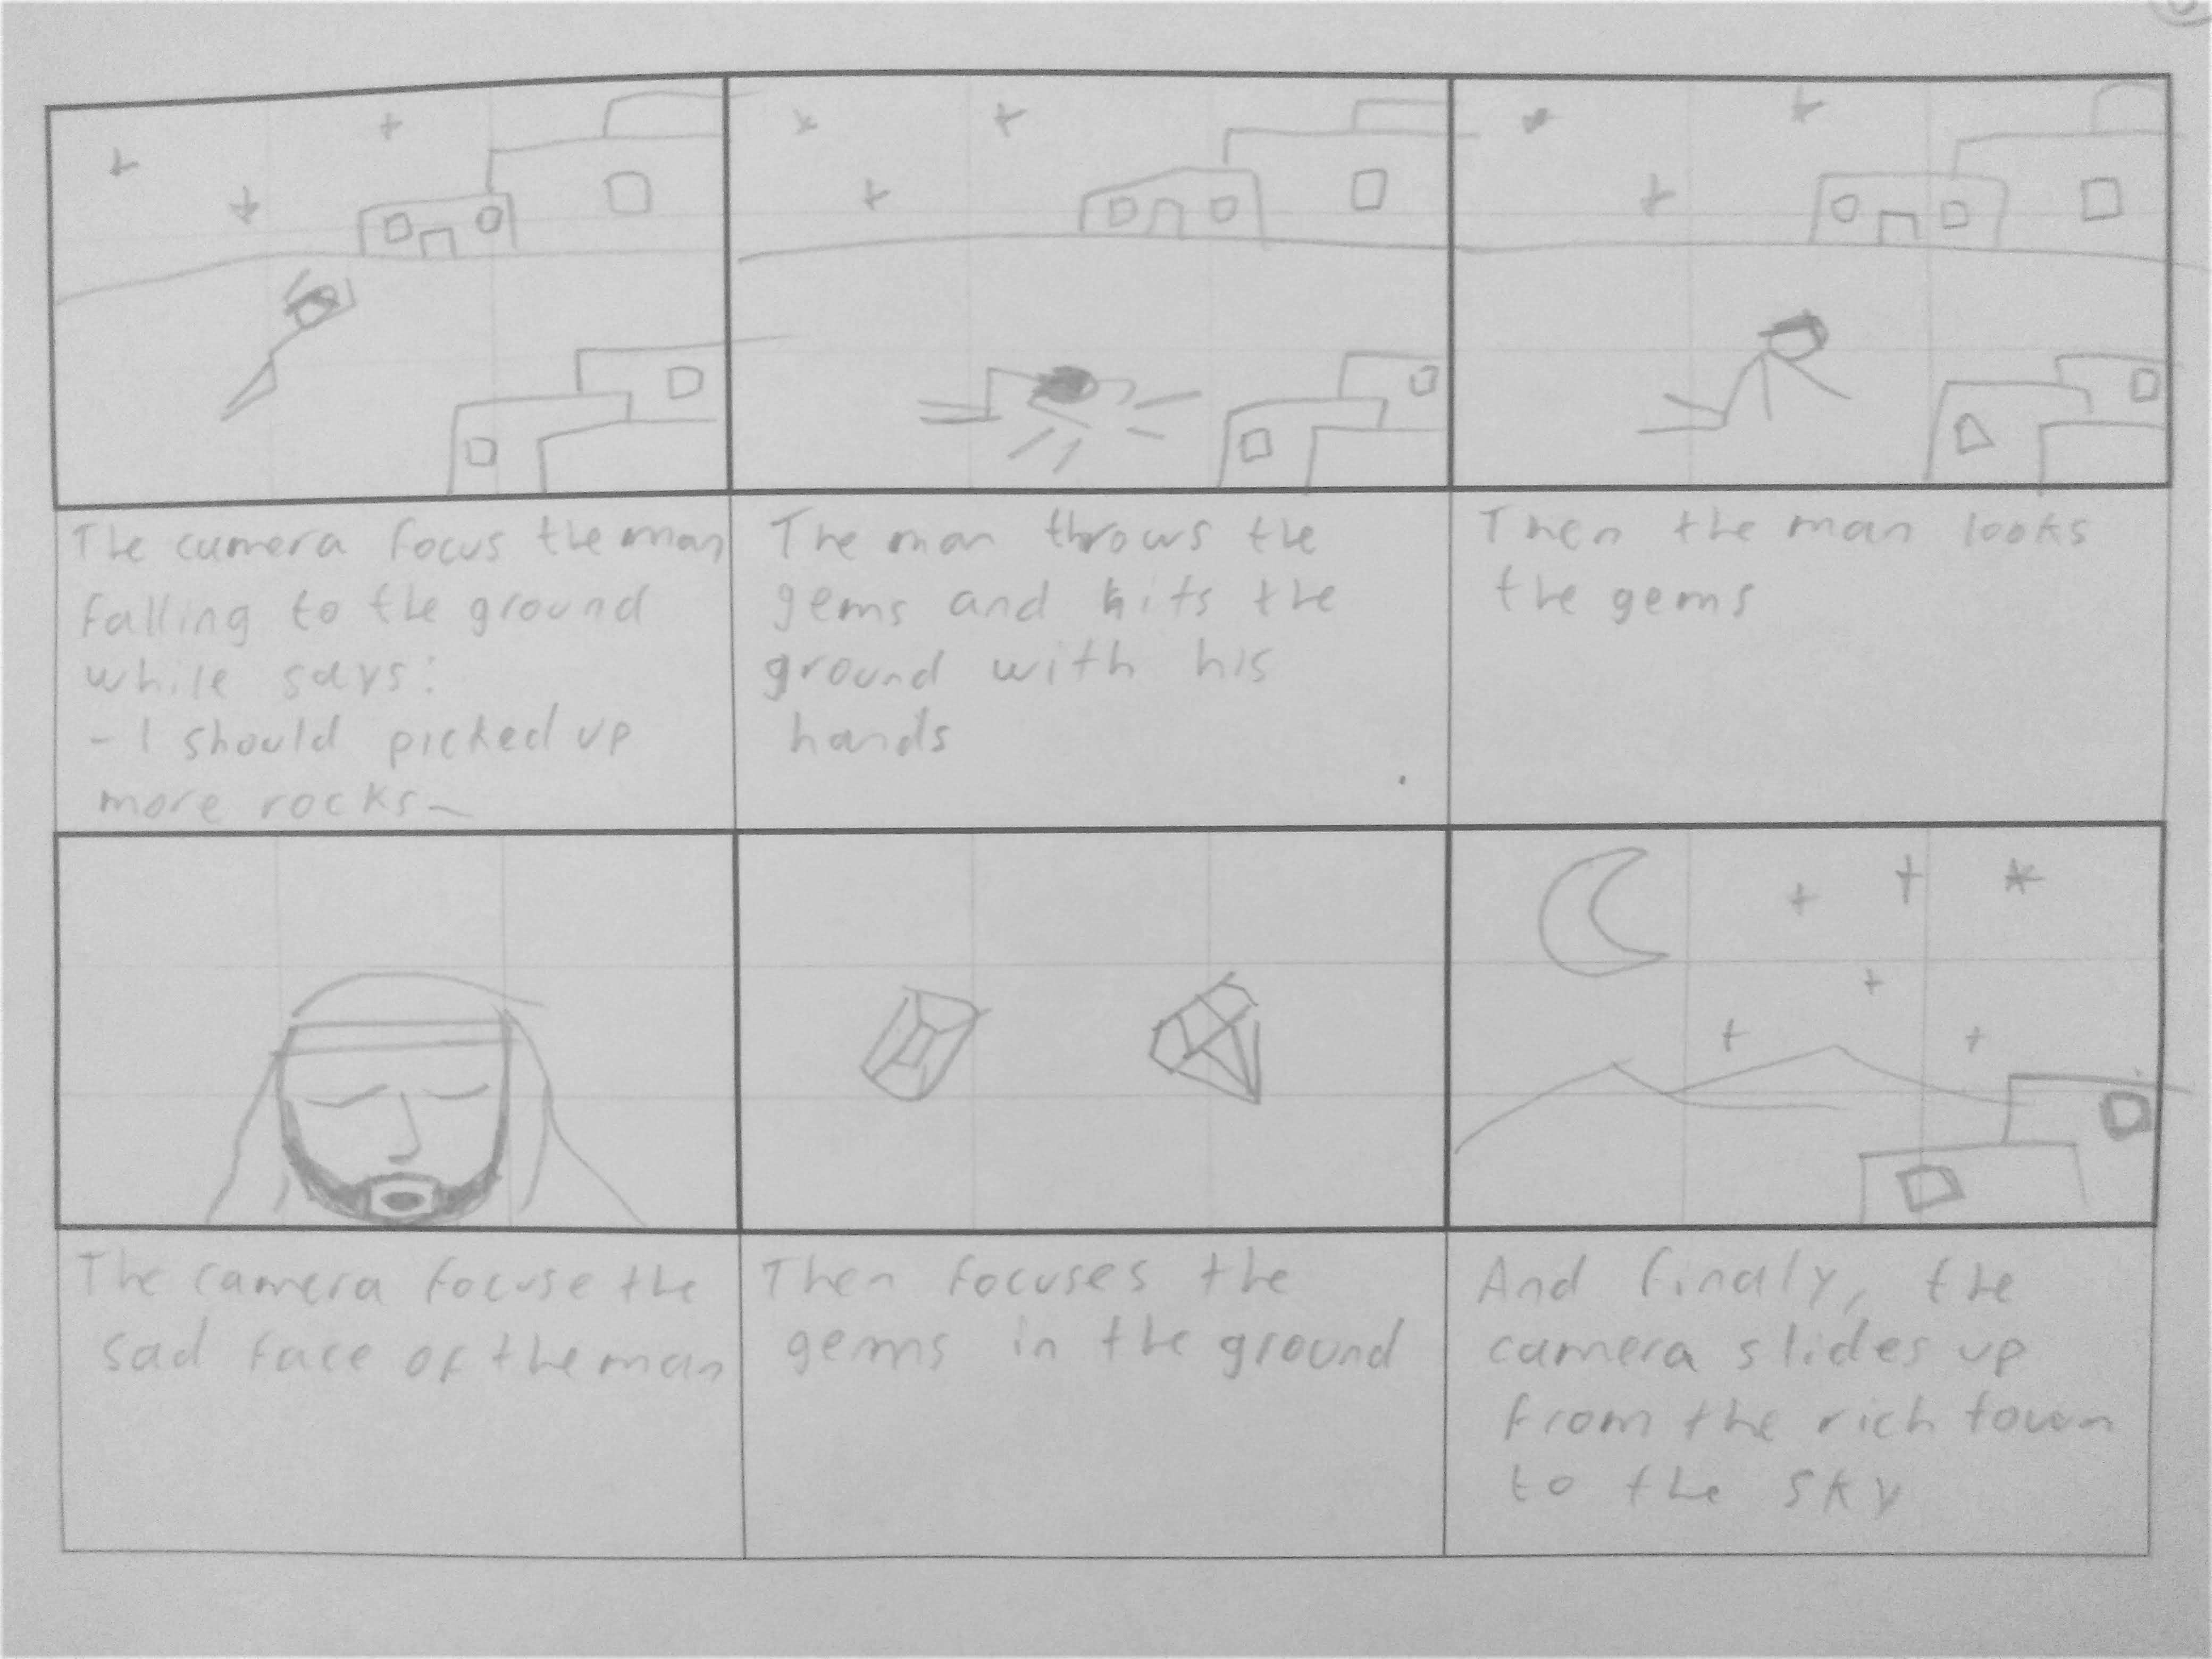 The camera focus the man
falling to the ground
while says:
- I should picked up
more rocks-
The man throws the
gems and hits the
ground with his
hands
Then the man looks
the gems
The camera focuse the
sad face of the man
Then focuses the
gems in the ground
And finaly, the
camera slides up
from the rich town
to the sky